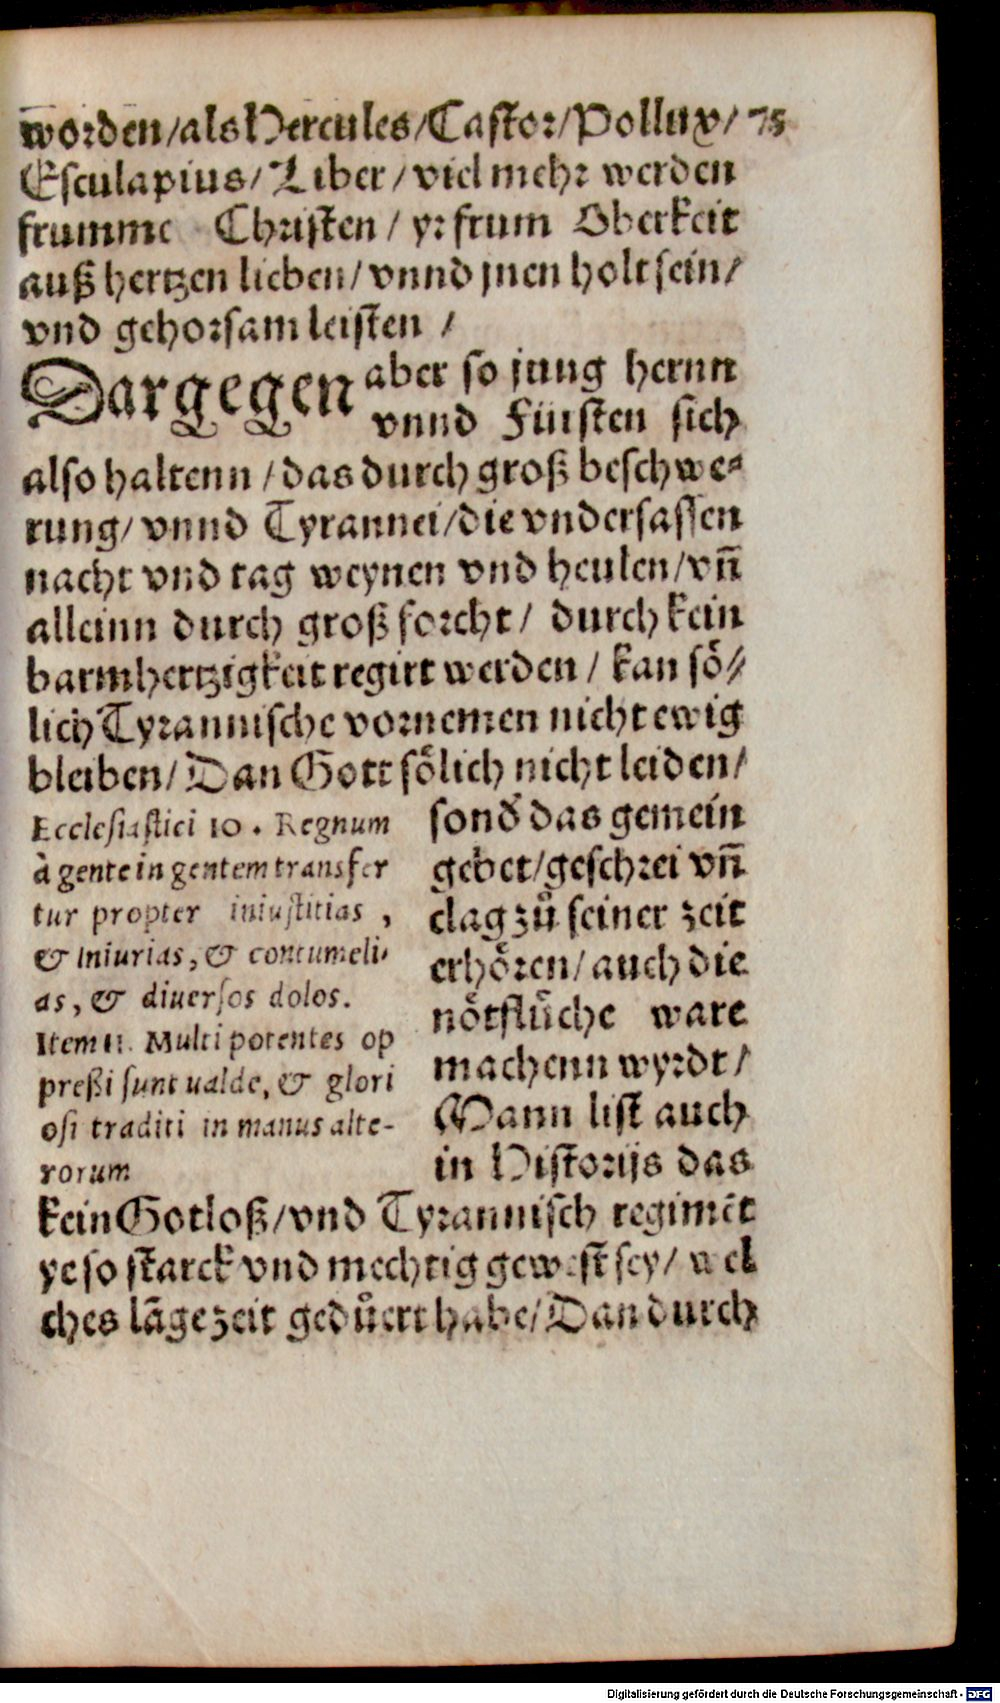 worden/als Hercules/Castor/Pollux/ 75
Esculapius/ Liber/ viel mehr werden
frumme Christen/ yr frum Oberkeit
auß hertzen lieben/ vnnd jnen holt sein/
vnd gehorsam leisten /
Dargegen aber so jung hernn
vnnd Fürsten sich
also haltenn/ das durch groß beschwe⸗
rung/ vnnd Tyrannei/die vndersassen
nacht vnd tag weynen vnd heulen/vn̄
alleinn durch groß forcht/ durch kein
barmhertzigkeit regirt werden/ kan soͤ⸗
lich Tyrannische vornemen nicht ewig
bleiben/ Dan Gott soͤlich nicht leiden/
sond̕ das gemein
gebet/geschrei vn̄
clag zuͦ seiner zeit
erhoͤren/ auch die
noͤtfluͤche ware
machenn wyrdt/
Mann list auch
in Historijs das
Ecclesiastici 10. Regnum
à gente in gentem transfer
tur propter iniustitias,
& Iniurias, & contumeli⸗
as, & diuersos dolos.
Item 11. Multi potentes op
preßi sunt ualde, & glori
osi traditi in manus alte-
rorum
kein Gotloß/vnd Tyrannisch regimēt
ye so starck vnd mechtig gewest sey/ wel
ches lāge zeit geduͤert habe/ Dan durch
Digitalisierung gefördert durch die Deutsche Forschungsgemeinschaft - DFG